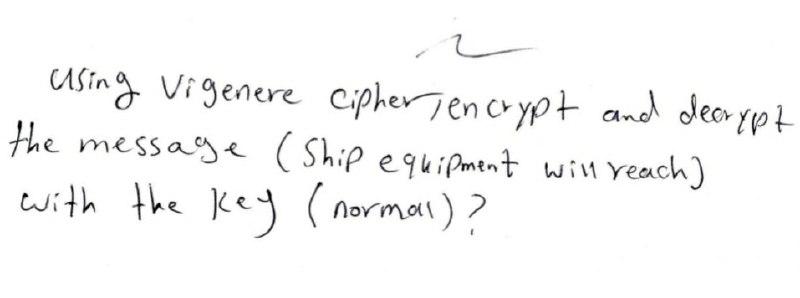 using Vigenere cipher, encrypt and decrypt
the message (Ship equipment will reach)
with the key (normal)?